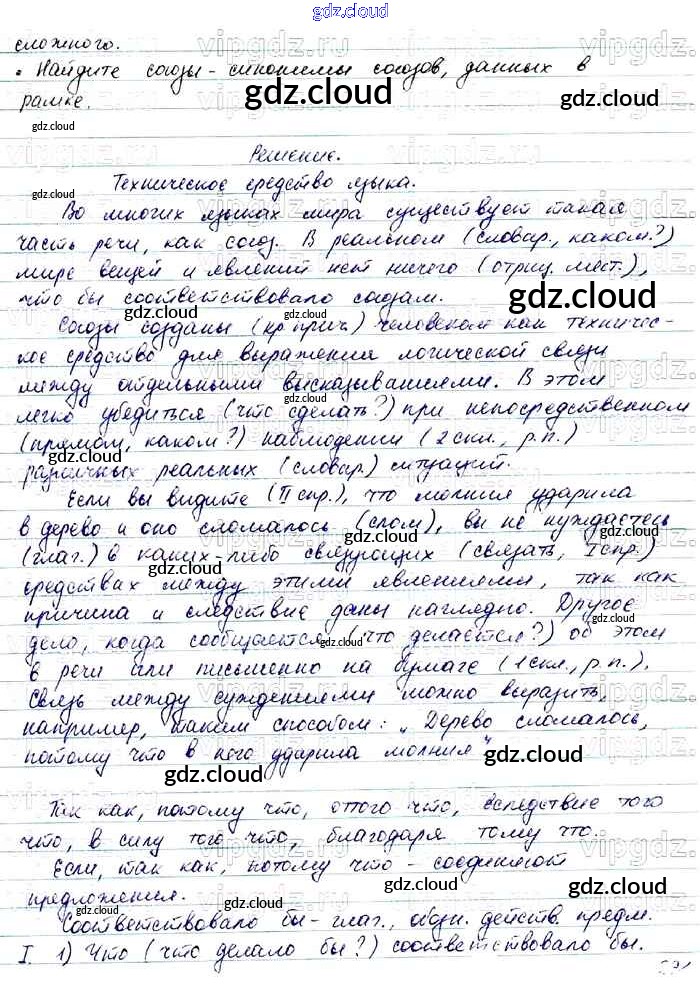 gdz.cloud
сложного.
• Найдите союзы-синонимы союзов, данных в
рамке.
gdz.cloud
gdz.cloud
Решение.
Техническое средство языка.
gdz.cloud
Во многих языках мира существует такая
часть речи, как союз. В реальном (словар., каком?)
мире вещей и явлений нет ничего (отриц. мест.),
что бы соответствовало союзам.
gdz.cloud
gdz.cloud
Союзы созданы (кр. прич.) человеком как техничес-
кое средство для выражения логической связи
между отдельными высказываниями. В этом
gdz.cloud
легко убедиться (что сделать?) при непосредственном
(прямом, каком?) наблюдении (2 скл., р.п.)
gdz.cloud
различных реальных (словар.) ситуаций.
Если вы видите (II спр.), что молния ударила
в дерево и оно сломалось (слом), вы не нуждаетесь
gdz.cloud
(глаг.) в каких-либо связующих (связать, I спр.)
gdz.cloud
средствах между этими явлениями, так как
причина и следствие даны наглядно. Другое
gdz.cloud
дело, когда сообщается (что делается?) об этом
gdz.cloud
в речи или письменно на бумаге (1 скл., р.п.).
Связь между суждениями можно выразить,
gdz.cloud
например, таким способом: „Дерево сломалось,
потому что в него ударила молния"
gdz.cloud
gdz.cloud
Так как, потому что, оттого что, вследствие того
что, в силу того что, благодаря тому что.
gdz.cloud
Если, так как, потому что - соединяют
предложения.
gdz.cloud
gdz.cloud
Соответствовало бы - глаг., обозн. действ. предм.
I. 1) Что (что делало бы?) соответствовало бы.